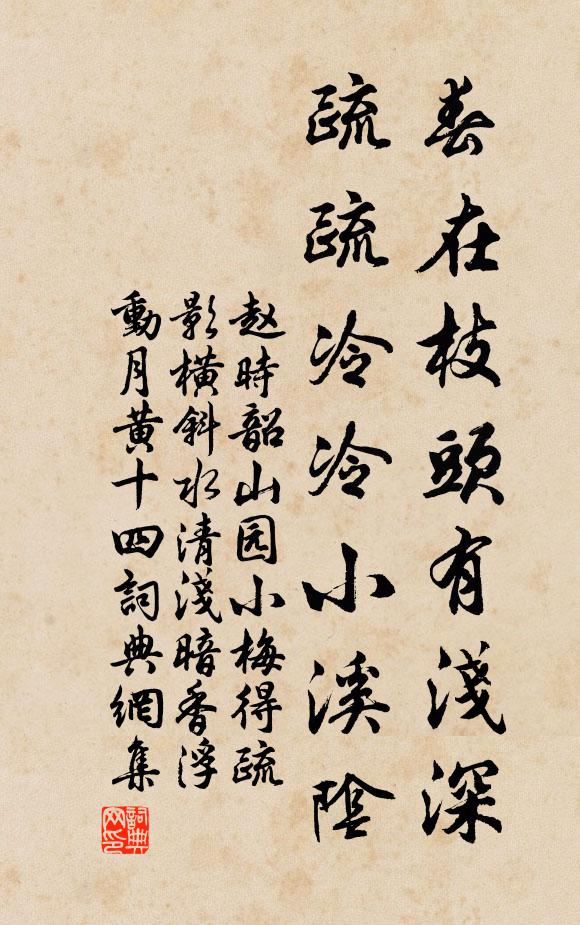 春在枝頭有淺深
疏疏冷冷小溪陰
赵時韶山园小梅得疏
影橫斜水清淺暗香浮
動月黄十四詞典網集
詞典网印